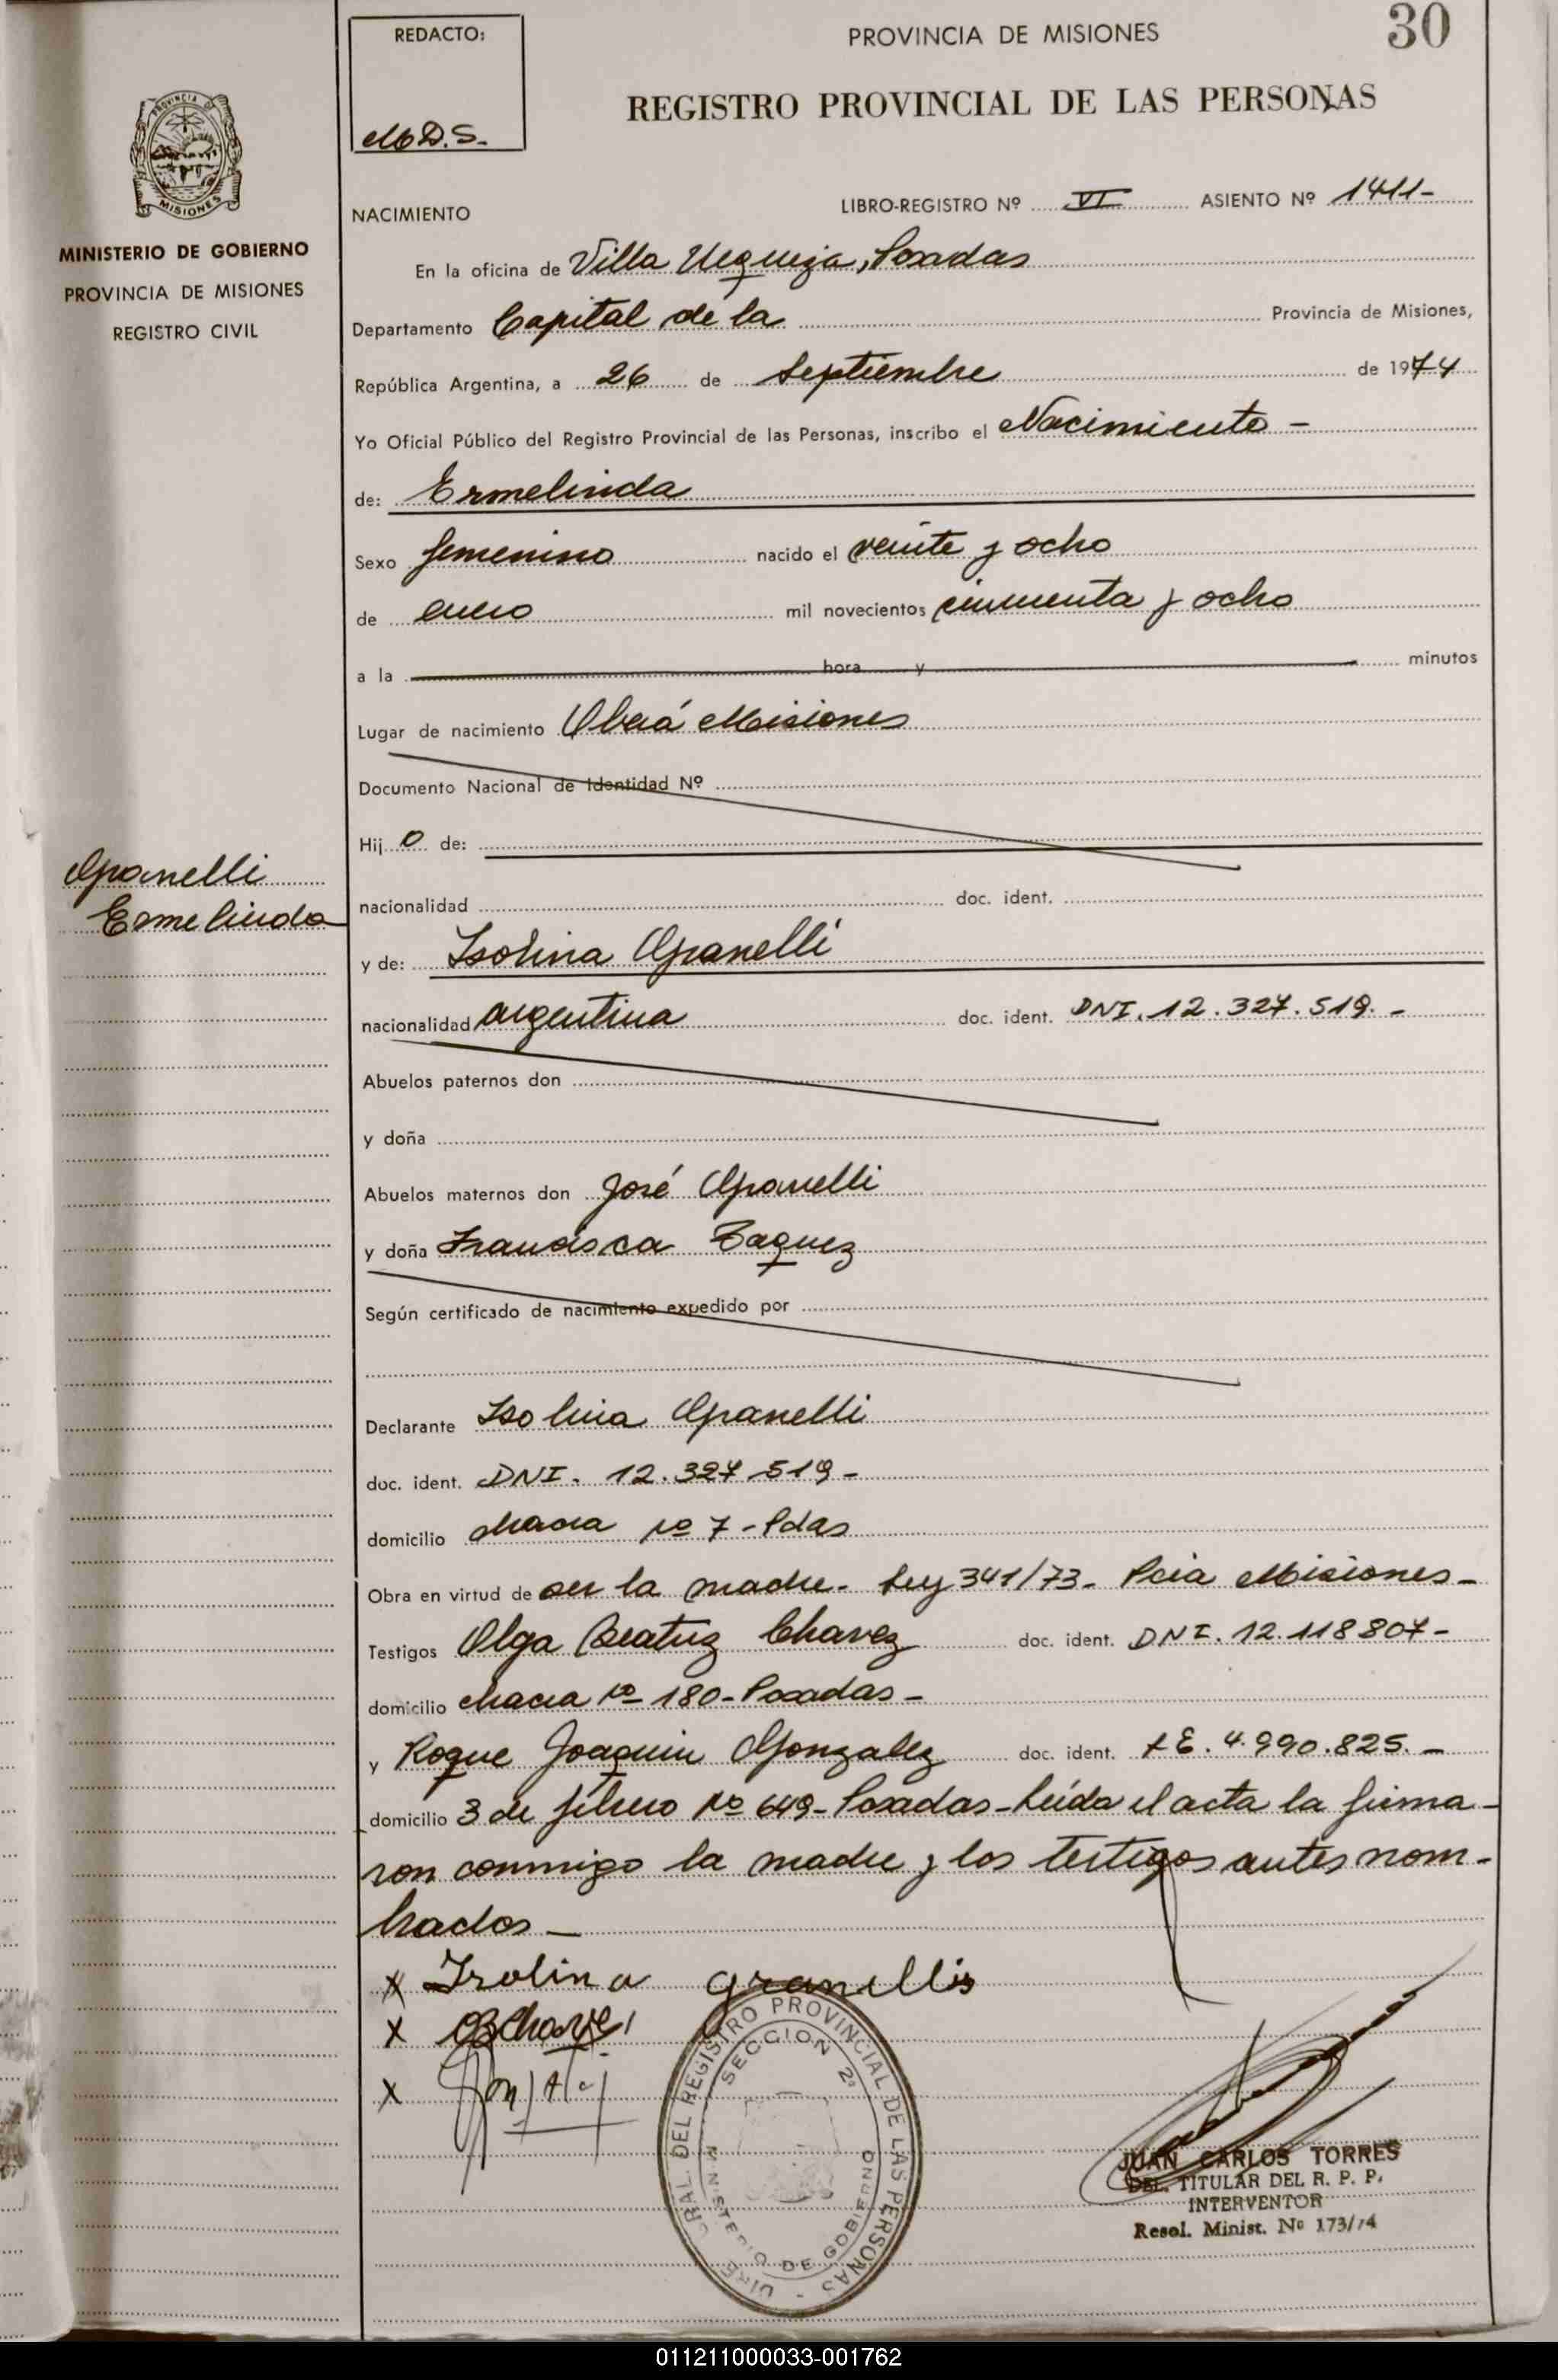 REDACTO:
M.D.S.-
PROVINCIA DE MISIONES
30
REGISTRO PROVINCIAL DE LAS PERSONAS
PROVINCIA DE
MISIONES
MINISTERIO DE GOBIERNO
PROVINCIA DE MISIONES
REGISTRO CIVIL
NACIMIENTO
LIBRO-REGISTRO Nº VI ASIENTO Nº 1411-
En la oficina de Villa Urquiza, Posadas
Departamento Capital de la Provincia de Misiones,
República Argentina, a 26 de Septiembre de 1974
Yo Oficial Público del Registro Provincial de las Personas, inscribo el Nacimiento -
de: Ermelinda
Sexo femenino nacido el veinte y ocho
de enero mil novecientos cincuenta y ocho
a la hora y minutos
Lugar de nacimiento Oberá Misiones
Documento Nacional de Identidad Nº
Hij o de:
Granelli
Ermelinda
nacionalidad doc. ident.
y de: Isolina Granelli
nacionalidad argentina doc. ident. DNI. 12.327.519.-
Abuelos paternos don
y doña
Abuelos maternos don José Granelli
y doña Francisca Baquez
Según certificado de nacimiento expedido por
Declarante Isolina Granelli
doc. ident. DNI. 12.327.519-
domicilio chacra Nº 7 - Pdas
Obra en virtud de ser la madre. Ley 341/73- Pcia Misiones-
Testigos Olga Beatriz Chavez doc. ident. DNI. 12.118807-
domicilio chacra Nº 180- Posadas-
y Roque Joaquin Gonzalez doc. ident. LE. 4.990.825.-
domicilio 3 de febrero Nº 649- Posadas- Leída el acta la firma-
ron conmigo la madre y los testigos antes nom-
brados-
x Isolina granellis
x OBChavez
x
REGISTRO PROVINCIAL DE LAS PERSONAS
SECCION 2ª
MINISTERIO DE GOBIERNO
JUAN CARLOS TORRES
DEL. TITULAR DEL R. P. P.
INTERVENTOR
Resol. Minist. Nº 173/74
011211000033-001762